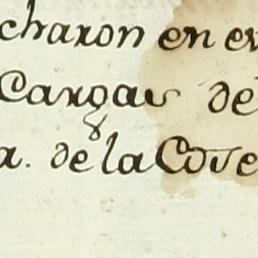 charon en ev
Cargas de
a. de la Cose